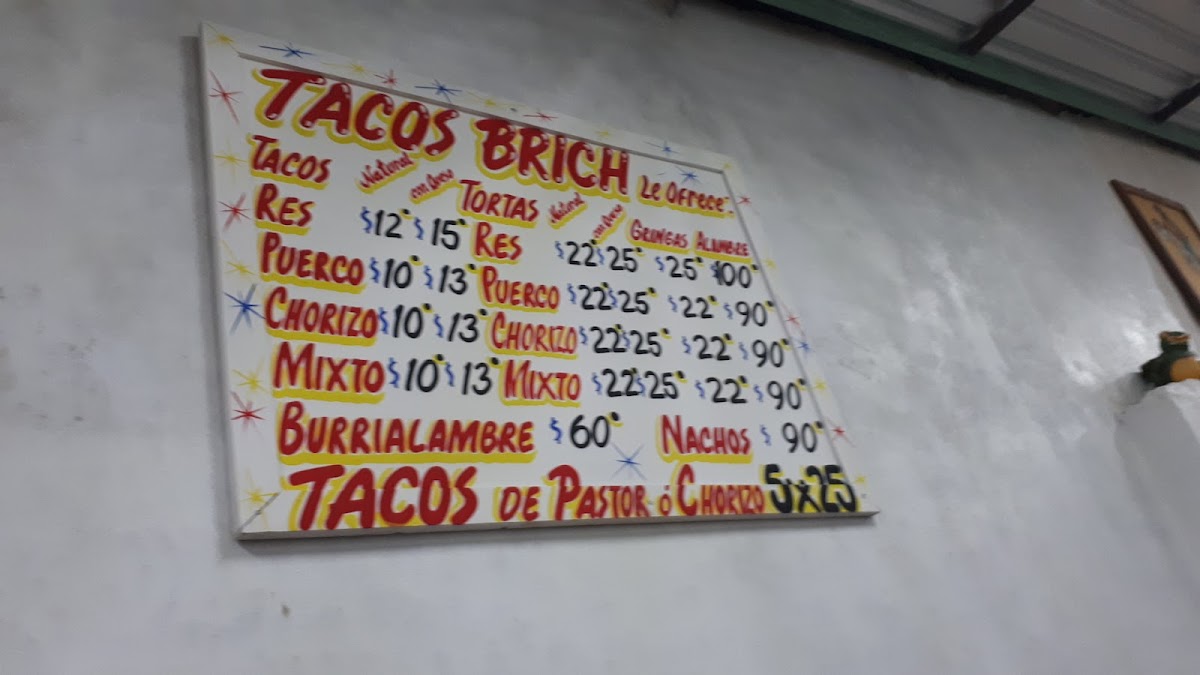 TACOS BRICH Le Ofrece:-
TACOS Natural con Queso TORTAS Natural con Queso GRINGAS ALAMBRE
RES $12 $15 RES $22 $25 $25 $100
PUERCO $10 $13 PUERCO $22 $25 $22 $90
CHORIZO $10 $13 CHORIZO $22 $25 $22 $90
MIXTO $10 $13 MIXTO $22 $25 $22 $90
BURRIALAMBRE $60 NACHOS $90
TACOS DE PASTOR ó CHORIZO 5x25